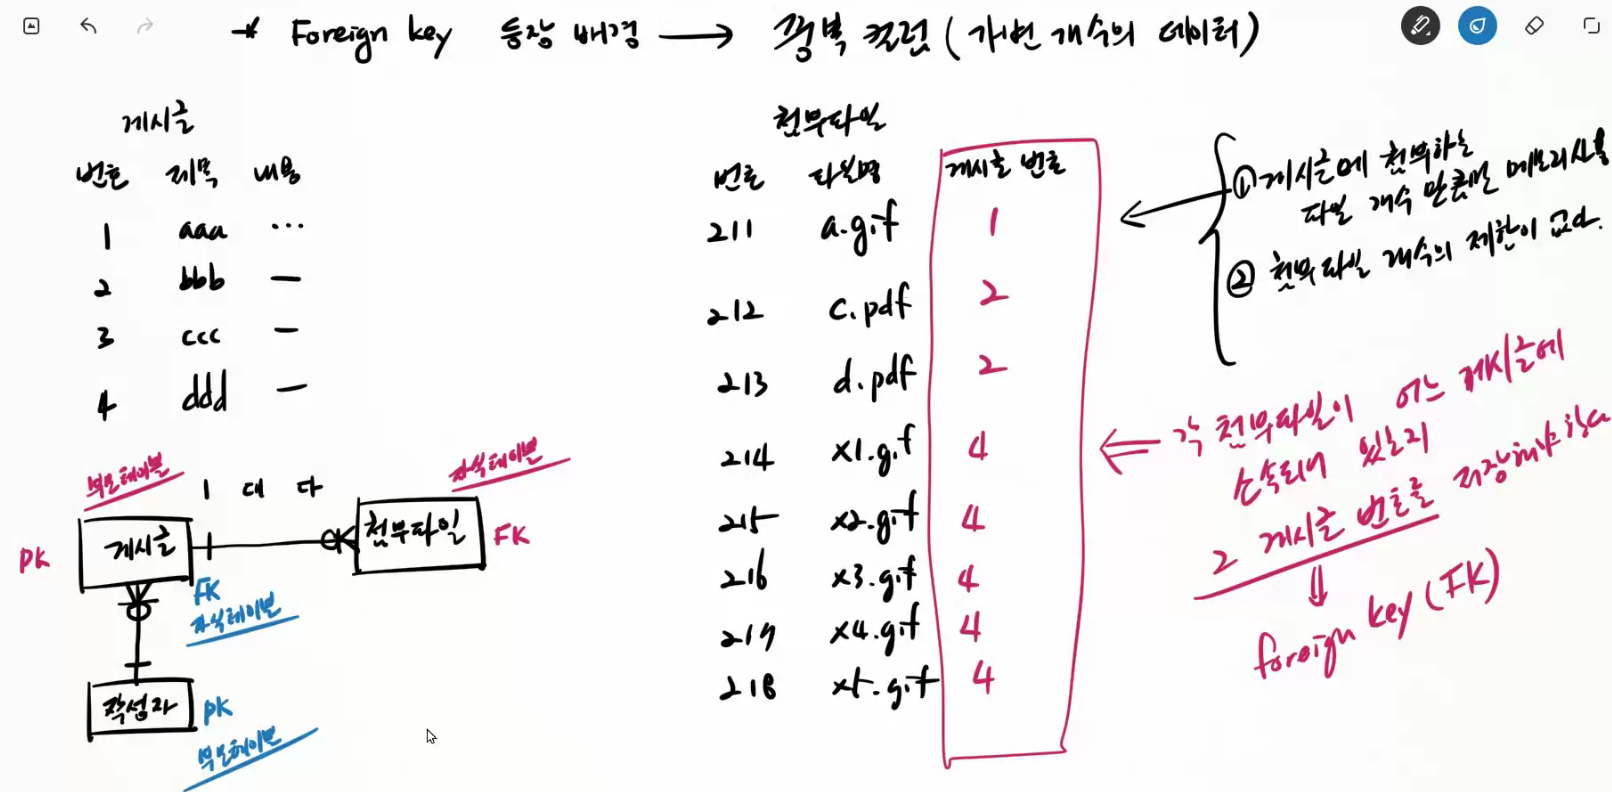 * Foreign key 등장 배경 → 중복 컬럼 (가변 개수의 데이터)
게시글
번호 제목 내용
1 aaa ...
2 bbb —
3 ccc —
4 ddd —
첨부파일
번호 파일명 게시글 번호
211 a.gif 1
212 c.pdf 2
213 d.pdf 2
214 x1.gif 4
215 x2.gif 4
216 x3.gif 4
217 x4.gif 4
218 x5.gif 4
① 게시글에 첨부하는
파일 개수 만큼만 메모리사용
② 첨부파일 개수의 제한이 없다.
각 첨부파일이 어느 게시글에
소속되어 있는지
그 게시글 번호를 저장해야 한다
⇓
foreign key (FK)
부모테이블
1 대 다
자식테이블
PK 게시글
첨부파일 FK
FK
자식테이블
작성자 PK
부모테이블